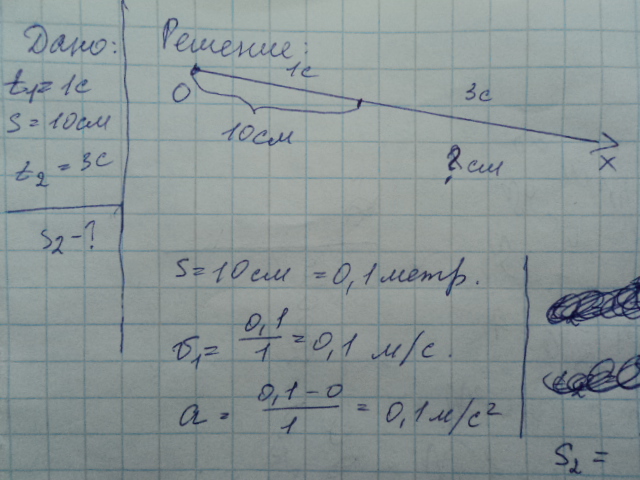 Дано:
t₁ = 1с
S = 10см
t₂ = 3с
S₂ - ?
Решение:
1с
3с
O
10см
? см
x
S = 10см = 0,1 метр.
υ₁ = 0,1/1 = 0,1 м/с.
a = 0,1-0/1 = 0,1 м/с²
S₂ =